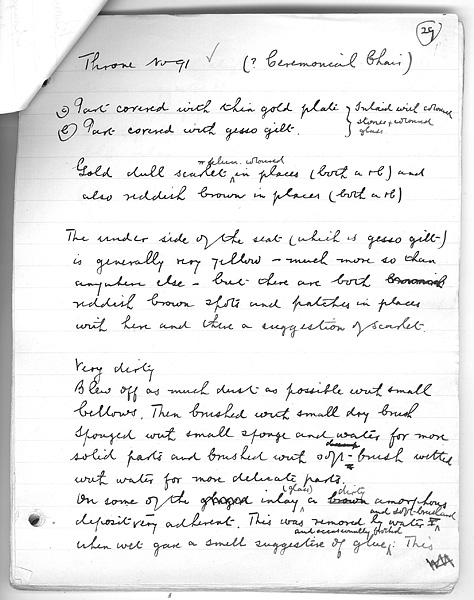 29
Throne No 91 ✓ (? Ceremonial Chair)
a) Part covered with thin gold plate } Inlaid with coloured
b) Part covered with gesso gilt. } stones & coloured glass
or plum-coloured
Gold dull scarlet ^ in places (both a & b) and
also reddish brown in places (both a & b)
The under side of the seat (which is gesso gilt)
is generally very yellow – much more so than
anywhere else – but there are both
reddish brown spots and patches in places
with here and there a suggestion of scarlet.
Very dirty
Blew off as much dust as possible with small
bellows. Then brushed with small dry brush
Sponged with small sponge and water for more
solid parts and brushed with soft brush wetted
with water for more delicate parts.
(glass) dirty
On some of the inlay ^ a brown amorphous
and soft brush and
deposit very adherent. This was removed by water ^
and occasionally
when wet gave a smell suggestive of glue. This